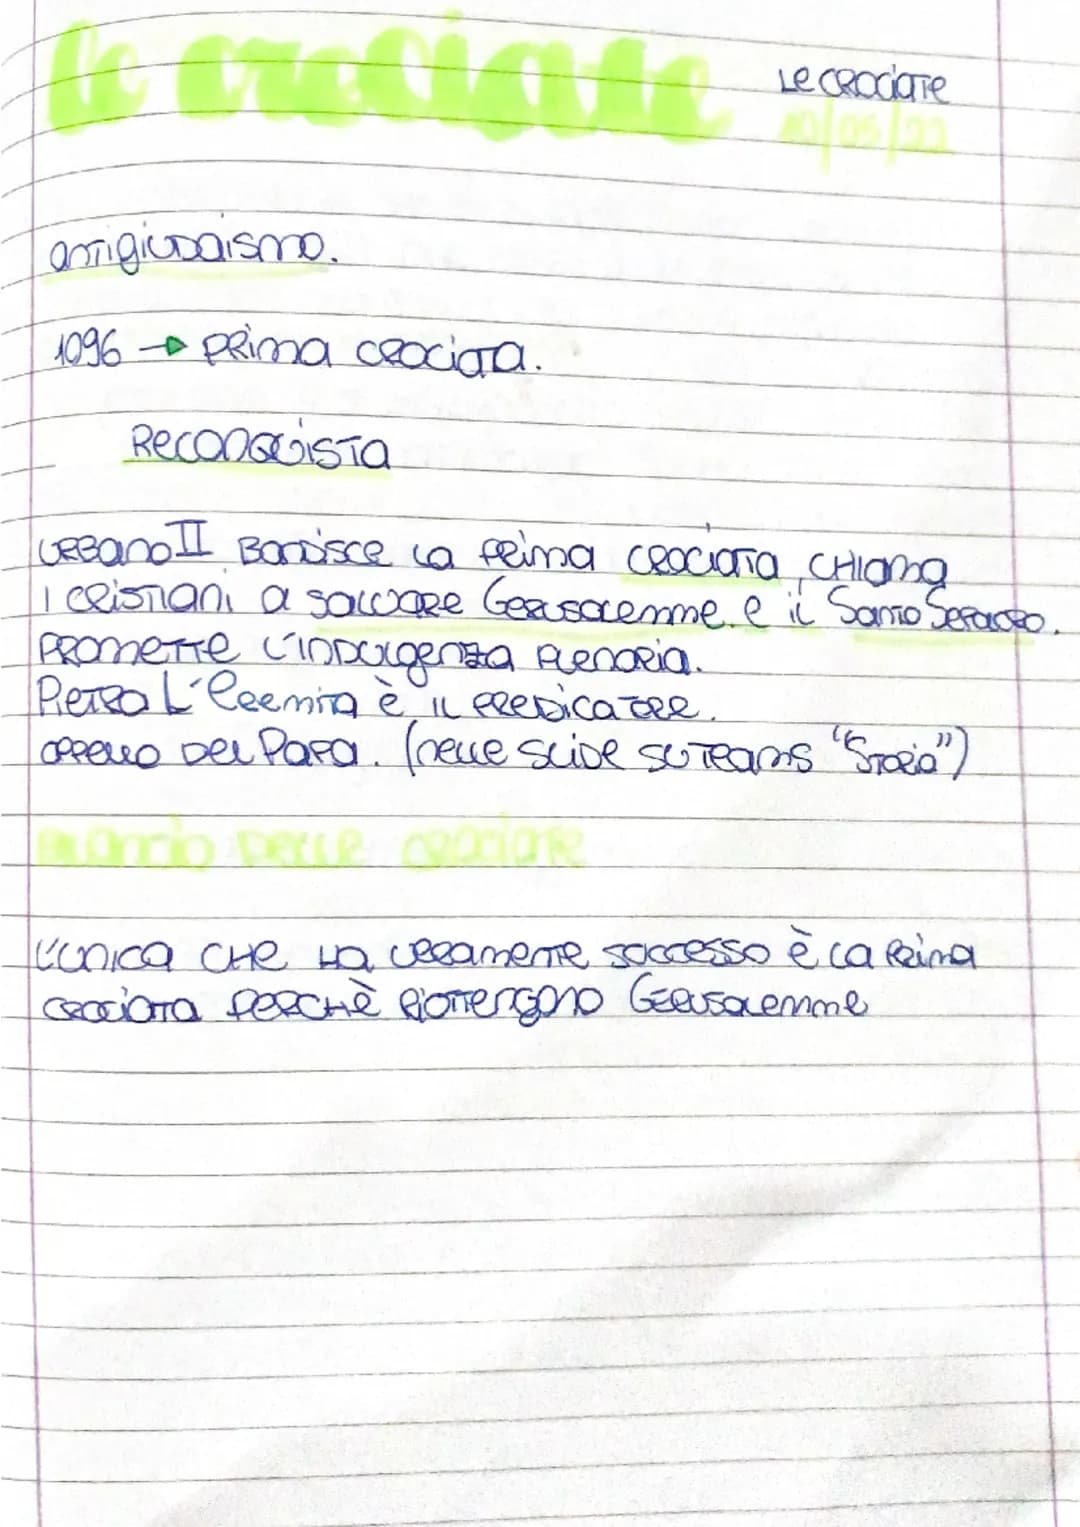 le crociate
Le crociate
10/05/22
antigiudaismo.
1096 → prima crociata.
Reconquista
Urbano II bandisce la prima crociata, chiama
i cristiani a salvare Gerusalemme e il Santo Sepolcro.
Promette l'indulgenza plenaria.
Pietro l'Eremita è il predicatore.
appello del Papa. (nelle slide su Teams "Storia")
delle crociate
l'unica che ha veramente successo è la prima
crociata perchè riottengono Gerusalemme